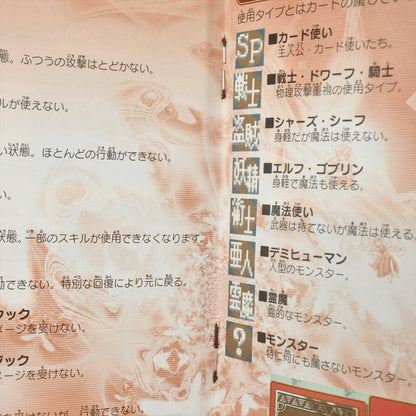 態。ふつうの攻撃はとどかない。
ルが使えない。
い状態。ほとんどの行動ができない。
い。
状態。一部のスキルが使用できなくなります。
動できない。特別な回復により元に戻る。
ック
メージを受けない。
ジック
メージを受けない。
使用タイプとはカードの属
SP
■カード使い
主人公・カード使いたち。
戦士
■戦士・ドワーフ・騎士
物理攻撃重視の使用タイプ。
盗賊
■シャーズ・シーフ
身軽だが魔法は使えない。
妖精
■エルフ・ゴブリン
身軽で魔法も使える。
術士
■魔法使い
武器は持てないが魔法は使える。
亜人
■デミヒューマン
人型のモンスター。
霊魔
■霊魔
霊的なモンスター。
?
■モンスター
特に何にも属さないモンスター。